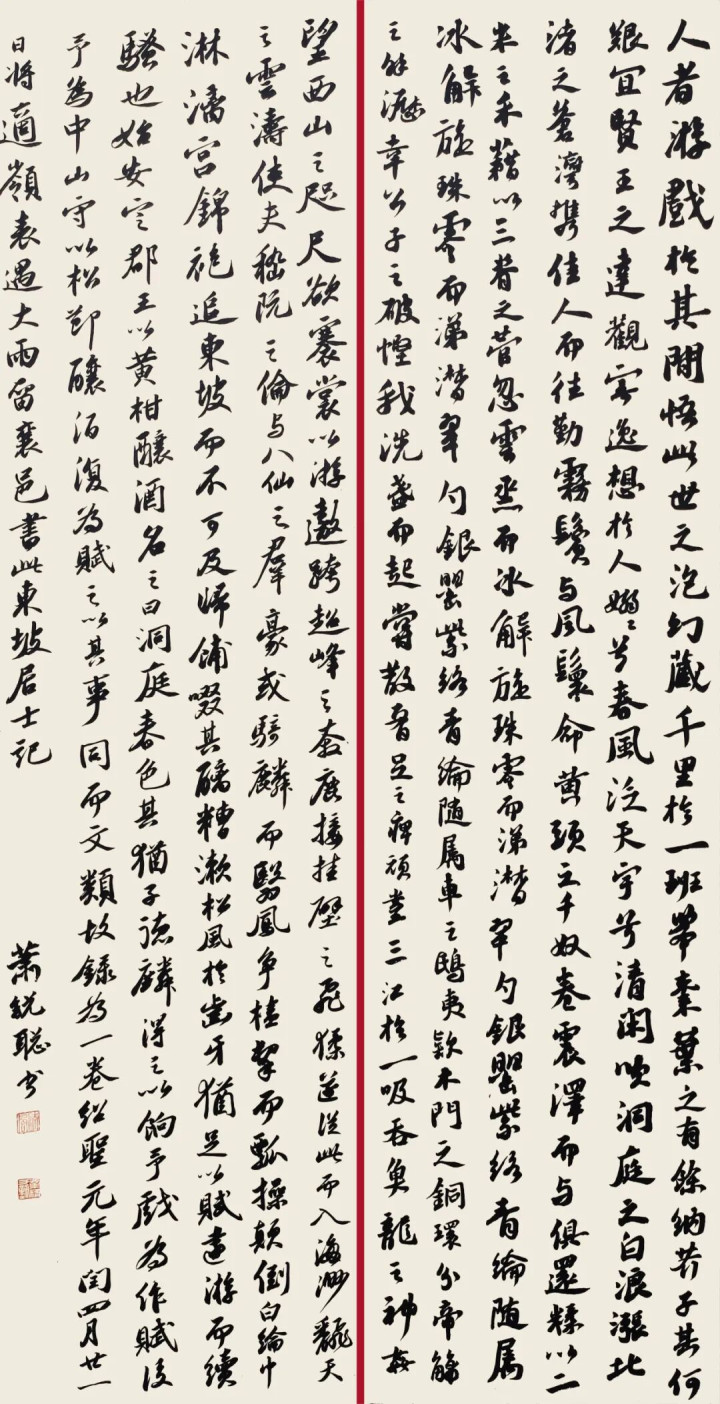 人者游戲於其閒悟此世之泡幻藏千里於一班舉棗葉之有餘納芥子其何
艱宜賢王之達觀寄逸想於人嫋〻兮春風泛天宇兮清閑吹洞庭之白浪漲北
渚之蒼灣攜佳人而往勤霧鬢与風鬟命黄頭之千奴卷震澤而与俱還糅以二
米之禾藉以三脊之菅忽雲烝而冰解旋珠零而涕潸翠勺銀罌紫絡青綸隨屬
冰解旋珠零而涕潸翠勺銀罌紫絡青綸隨属車之鴟夷款木門之銅環分帝觴
之餘瀝幸公子之破慳我洗盞而起嘗散腰足之痺頑盡三江於一吸吞魚龍之神姦
望西山之咫尺欲褰裳以游遨跨超峰之奔鹿接挂壁之飛猱遂從此而入海渺翻天
之雲濤使夫嵇阮之倫与八仙之羣豪或騎麟而翳鳳爭榼挈而瓢操顛倒白綸巾
淋漓宮錦袍追東坡而不可及歸餔歠其醨糟漱松風於齒牙猶足以賦遠游而續
騷也始安定郡王以黄柑釀酒名之曰洞庭春色其猶子德麟得之以餉予戲為作賦後
予為中山守以松節釀酒復為賦之以其事同而文類故錄為一卷紹聖元年閏四月廿一
日將適嶺表遇大雨留襄邑書此東坡居士記
蕭銳聰书